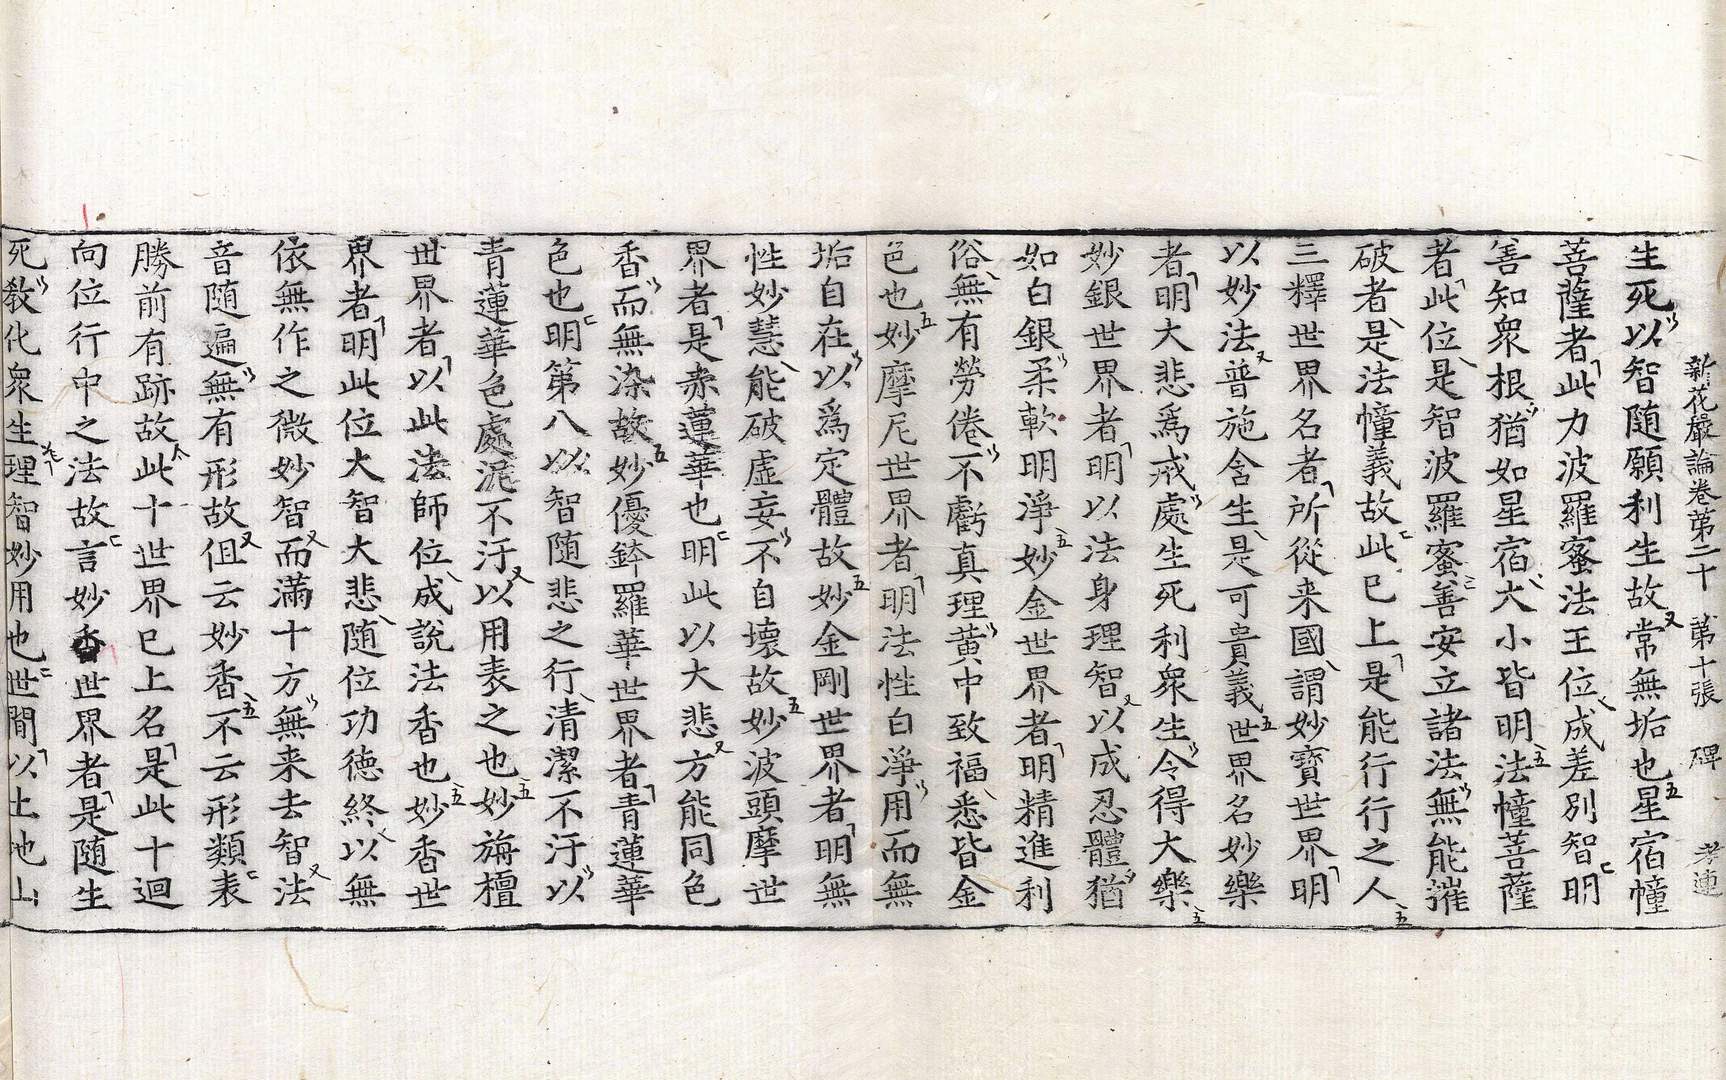 新花嚴論卷第二十　第十張　碑　孝連
生死以智随願利生故常無垢也星宿幢
菩薩者此力波羅蜜法王位成差別智明
善知衆根猶如星宿大小皆明法幢菩薩
者此位是智波羅蜜善安立諸法無能摧
破者是法幢義故此已上是能行行之人
三釋世界名者所從来國謂妙寳世界明
以妙法普施含生是可貴義世界名妙樂
者明大悲爲戒處生死利衆生令得大樂
妙銀世界者明以法身理智以成忍體猶
如白銀柔軟明淨妙金世界者明精進利
俗無有勞倦不虧真理黄中致福悉皆金
色也妙摩尼世界者明法性白淨用而無
垢自在以爲定體故妙金剛世界者明無
性妙慧能破虚妄不自壞故妙波頭摩世
界者是赤蓮華也明此以大悲方能同色
香而無染故妙優鉢羅華世界者青蓮華
色也明第八以智随悲之行清潔不汙以
青蓮華色處泥不汙以用表之也妙旃檀
世界者以此法師位成說法香也妙香世
界者明此位大智大悲随位功徳終以無
依無作之微妙智而滿十方無来去智法
音随遍無有形故但云妙香不云形類表
勝前有跡故此十世界已上名是此十迴
向位行中之法故言妙香世界者是随生
死教化衆生理智妙用也世間以土地山